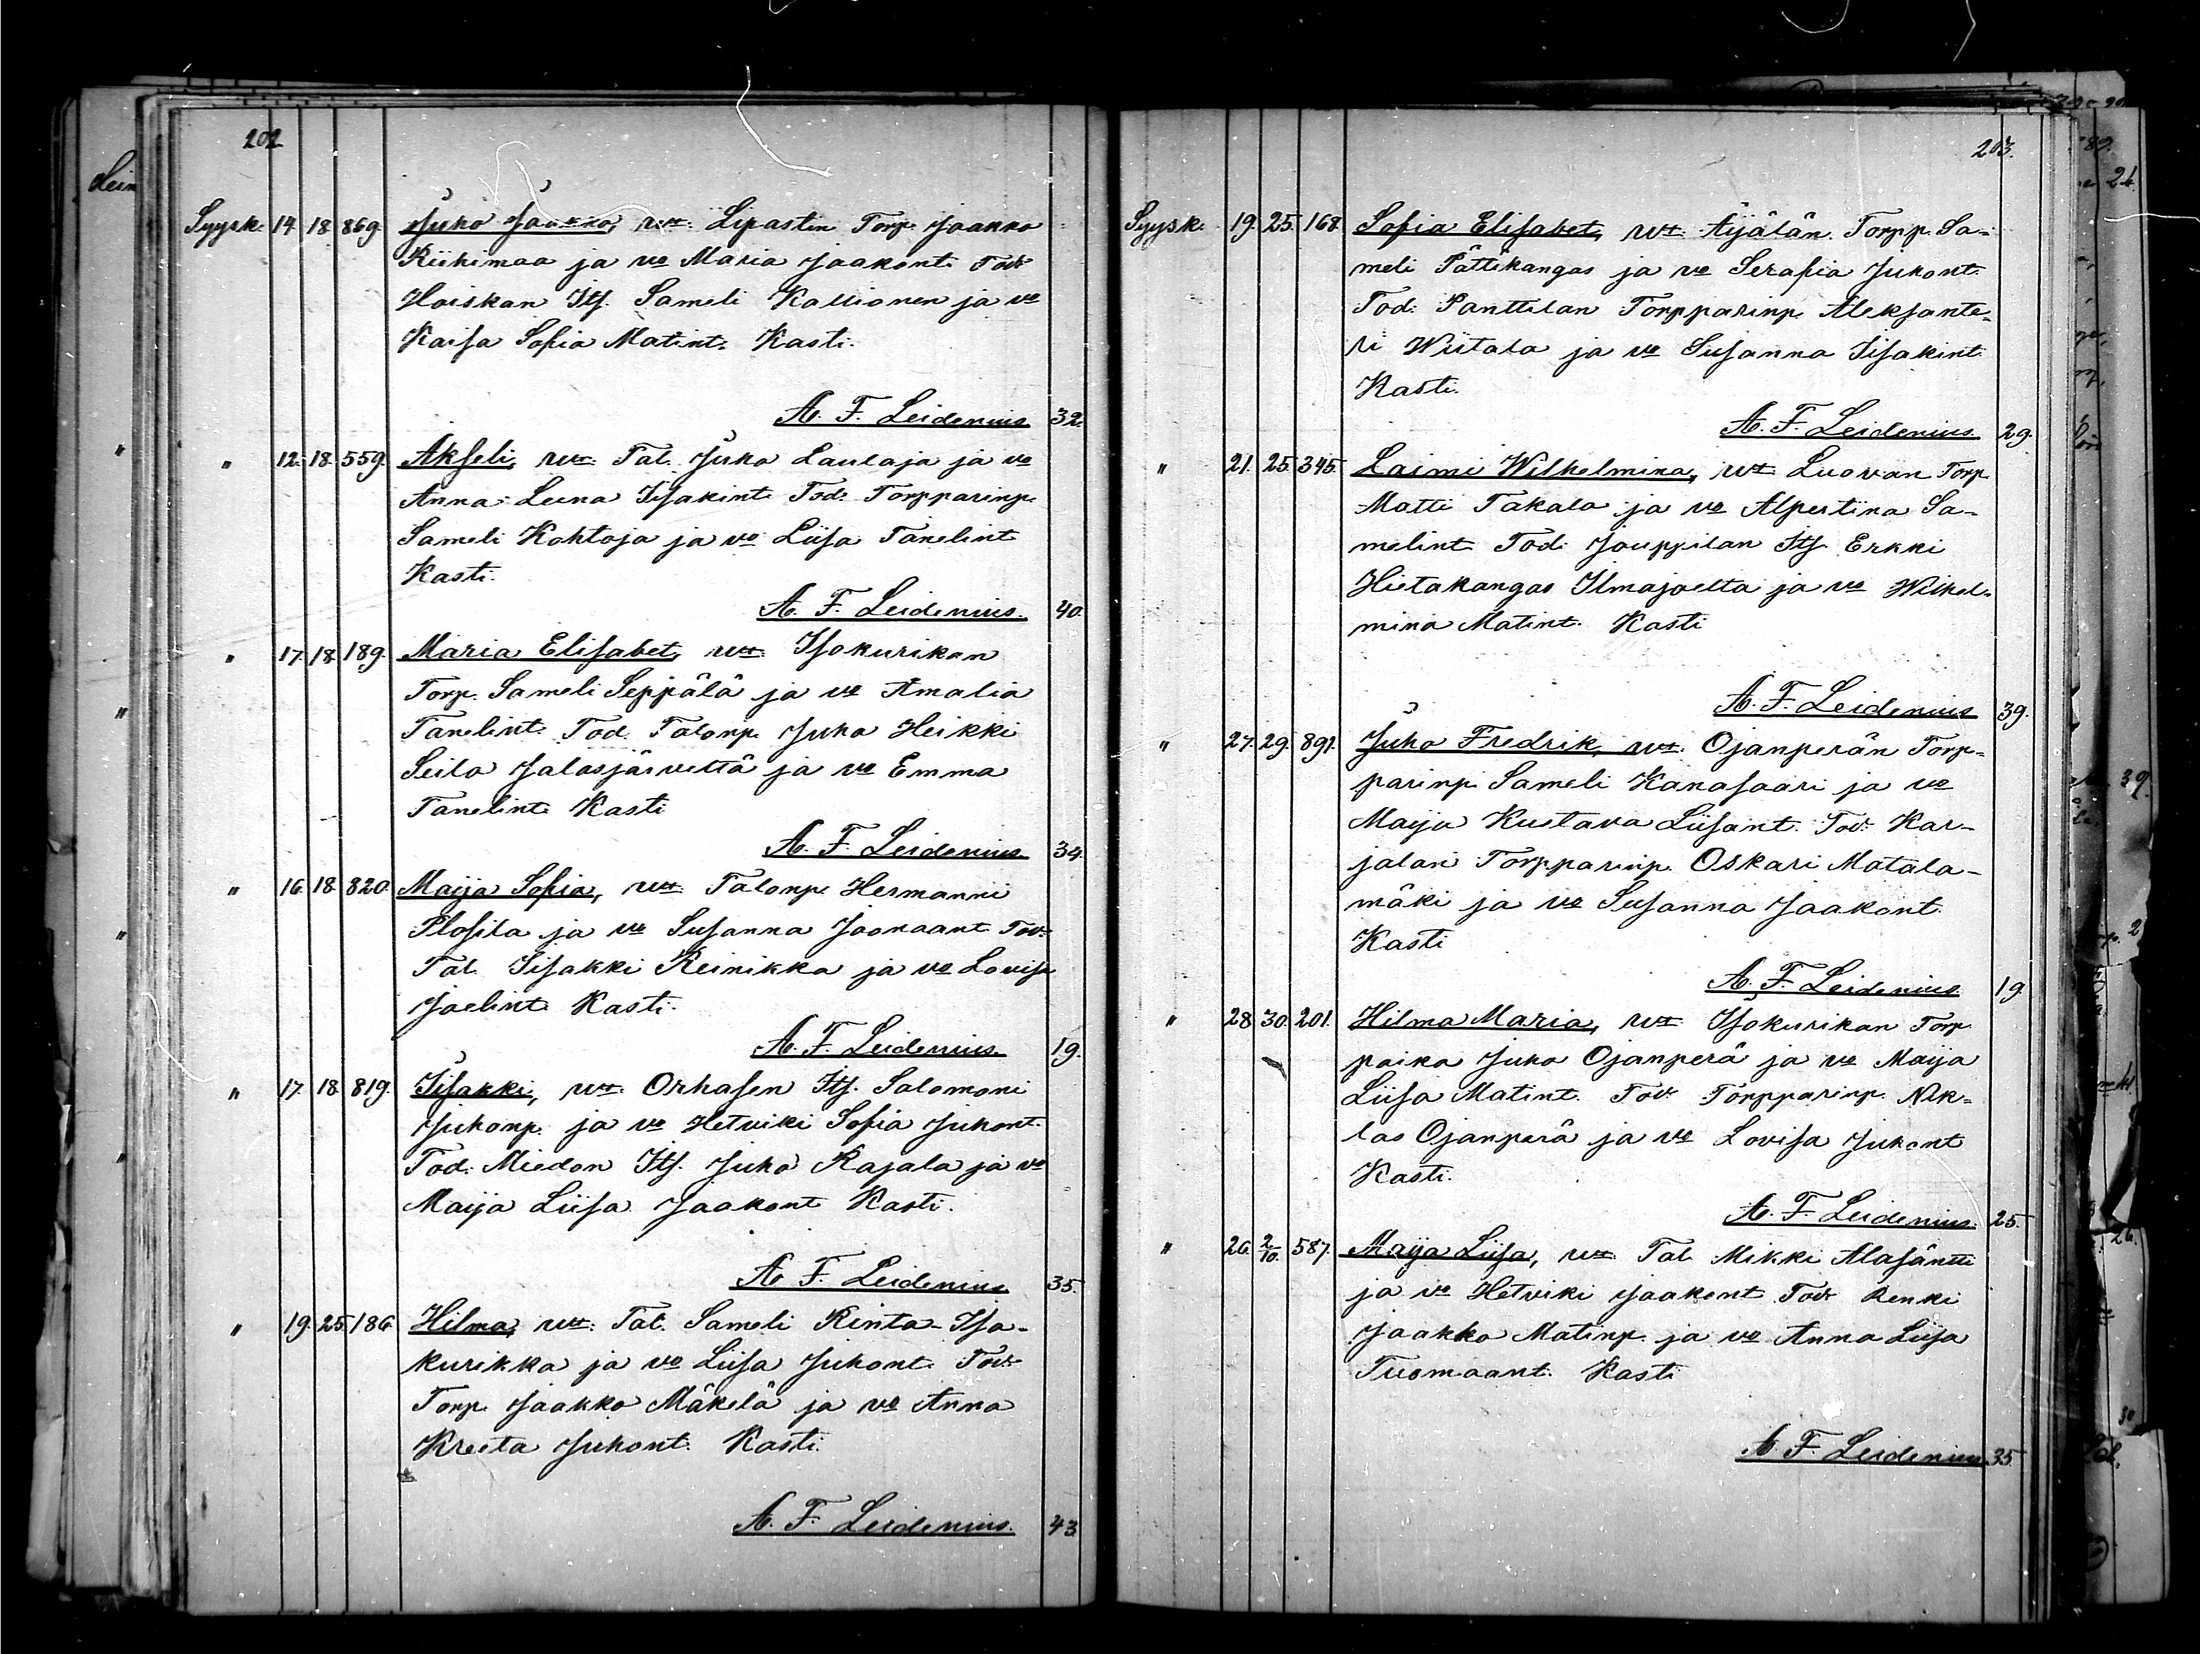 202
Syysk. 14. 18. 869. Juho Jaakko, vt. Lipastin Torp. Jaakko
Riihimaa ja vo Maria Jaakont. Tod:
Hoiskan Its. Sameli Kallionen ja vo
Kaisa Sofia Matint. Kasti.
A. F. Leidenius. 32.
" 12. 18. 559. Akseli, vt. Tal. Juha Laulaja ja vo
Anna Leena Iisakint. Tod: Torpparinp.
Sameli Kohtoja ja vo Liisa Tanelint
Kasti.
A. F. Leidenius. 40.
" 17. 18. 189. Maria Elisabet, vt. Isokurikan
Torp. Sameli Seppälä ja vo Amalia
Tanelint. Tod. Talonp. Juha Heikki
Seilo Jalasjärveltä ja vo Emma
Tanelint. Kasti
A. F. Leidenius 34.
" 16. 18. 820. Maija Sofia, vt. Talonp. Hermanni
Plosila ja vo Susanna Joonaant. Tod:
Tal. Iisakki Reinikka ja vo Lovisa
Joelint. Kasti.
A. F. Leidenius. 19.
" 17. 18. 819. Iisakki, vt. Orhasen Its. Salomoni
Juhonp. ja vo Hetviki Sofia Juhont.
Tod. Miedon Its. Juho Rajala ja vo
Maija Liisa Jaakont Kasti.
A. F. Leidenius 35.
" 19. 25. 186. Hilma, vt. Tal. Sameli Rinta-Iso-
kurikka ja vo Liisa Juhont. Tod:
Torp. Jaakko Mäkelä ja vo Anna
Kreeta Juhont. Kasti.
A. F. Leidenius. 43.
203.
Syysk. 19. 25. 168. Sofia Elisabet, vt. Äijälän Torpp. Sa-
meli Pättikangas ja vo Serafia Juhont.
Tod. Panttilan Torpparinp. Aleksante-
ri Wiitala ja vo Susanna Iisakint.
Kasti.
A. F. Leidenius. 29.
" 21. 25. 345. Laimi Wilhelmina, vt. Luovan Torp.
Matti Takala ja vo Alpertiina Sa-
melint. Tod. Jouppilan Its. Erkki
Hietakangas Ilmajoelta ja vo Wilhel-
mina Matint. Kasti
A. F. Leidenius 39.
" 27. 29. 891. Juho Fredrik, vt. Ojanperän Torp-
parinp. Sameli Kanasaari ja vo
Maija Kustava Liisant. Tod: Kar-
jalan Torpparinp. Oskari Matala-
mäki ja vo Susanna Jaakont.
Kasti
A. F. Leidenius 19.
" 28. 30. 201. Hilma Maria, vt. Isokurikan Torp.
poika Juho Ojanperä ja vo Maija
Liisa Matint. Tod: Torpparinp. Nik-
las Ojanperä ja vo Lovisa Juhont
Kasti.
A. F. Leidenius. 25.
" 26. 2/10. 587. Maija Liisa, vt. Tal. Mikki Alasäntti
ja vo Hetviki Jaakont Tod: Renki
Jaakko Matinp. ja vo Anna Liisa
Tuomaant. Kasti
A. F. Leidenius 35.